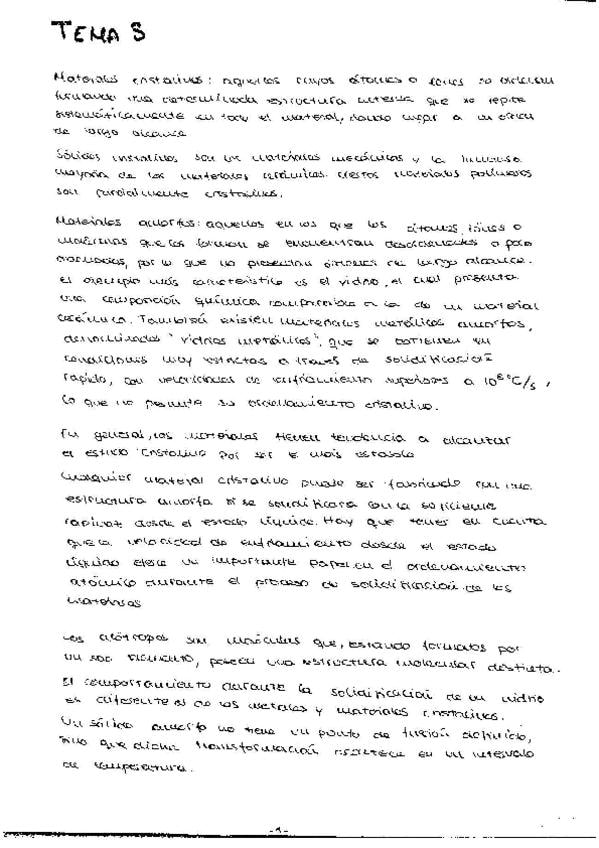 TEMA 3
Materiales cristalinos: aquellos cuyos átomos o iones se ordenan
formando una determinada estructura interna que se repite
sistemáticamente en todo el material, dando lugar a un orden
de largo alcance
Sólidos cristalinos son los materiales metálicos y la inmensa
mayoría de los materiales cerámicos. ciertos materiales polímeros
son parcialmente cristalinos.
Materiales amorfos: aquellos en los que los átomos, iones o
moléculas que los forman se encuentran desordenados o poco
ordenados, por lo que no presentan órdenes de largo alcance.
El ejemplo más característico es el vidrio, el cual presenta
una composición química comparable a la de un material
cerámico. También existen materiales metálicos amorfos,
denominados "vidrios metálicos", que se obtienen en
condiciones muy estrictas a través de solidificación
rápida, con velocidades de enfriamiento superiores a 10⁶ °C/s,
lo que no permite su ordenamiento cristalino.
En general, los materiales tienen tendencia a alcanzar
el estado cristalino por ser el más estable
Cualquier material cristalino puede ser fabricado con una
estructura amorfa si se solidificara con la suficiente
rapidez desde el estado líquido. Hay que tener en cuenta
que la velocidad de enfriamiento desde el estado
líquido ejerce un importante papel en el ordenamiento
atómico durante el proceso de solidificación de los
materiales
Los alótropos son moléculas que, estando formados por
un solo elemento, poseen una estructura molecular distinta.
El comportamiento durante la solidificación de un vidrio
es diferente al de los metales y materiales cristalinos.
Un sólido amorfo no tiene un punto de fusión definido,
sino que dicha transformación acontece en un intervalo
de temperatura.
-1-